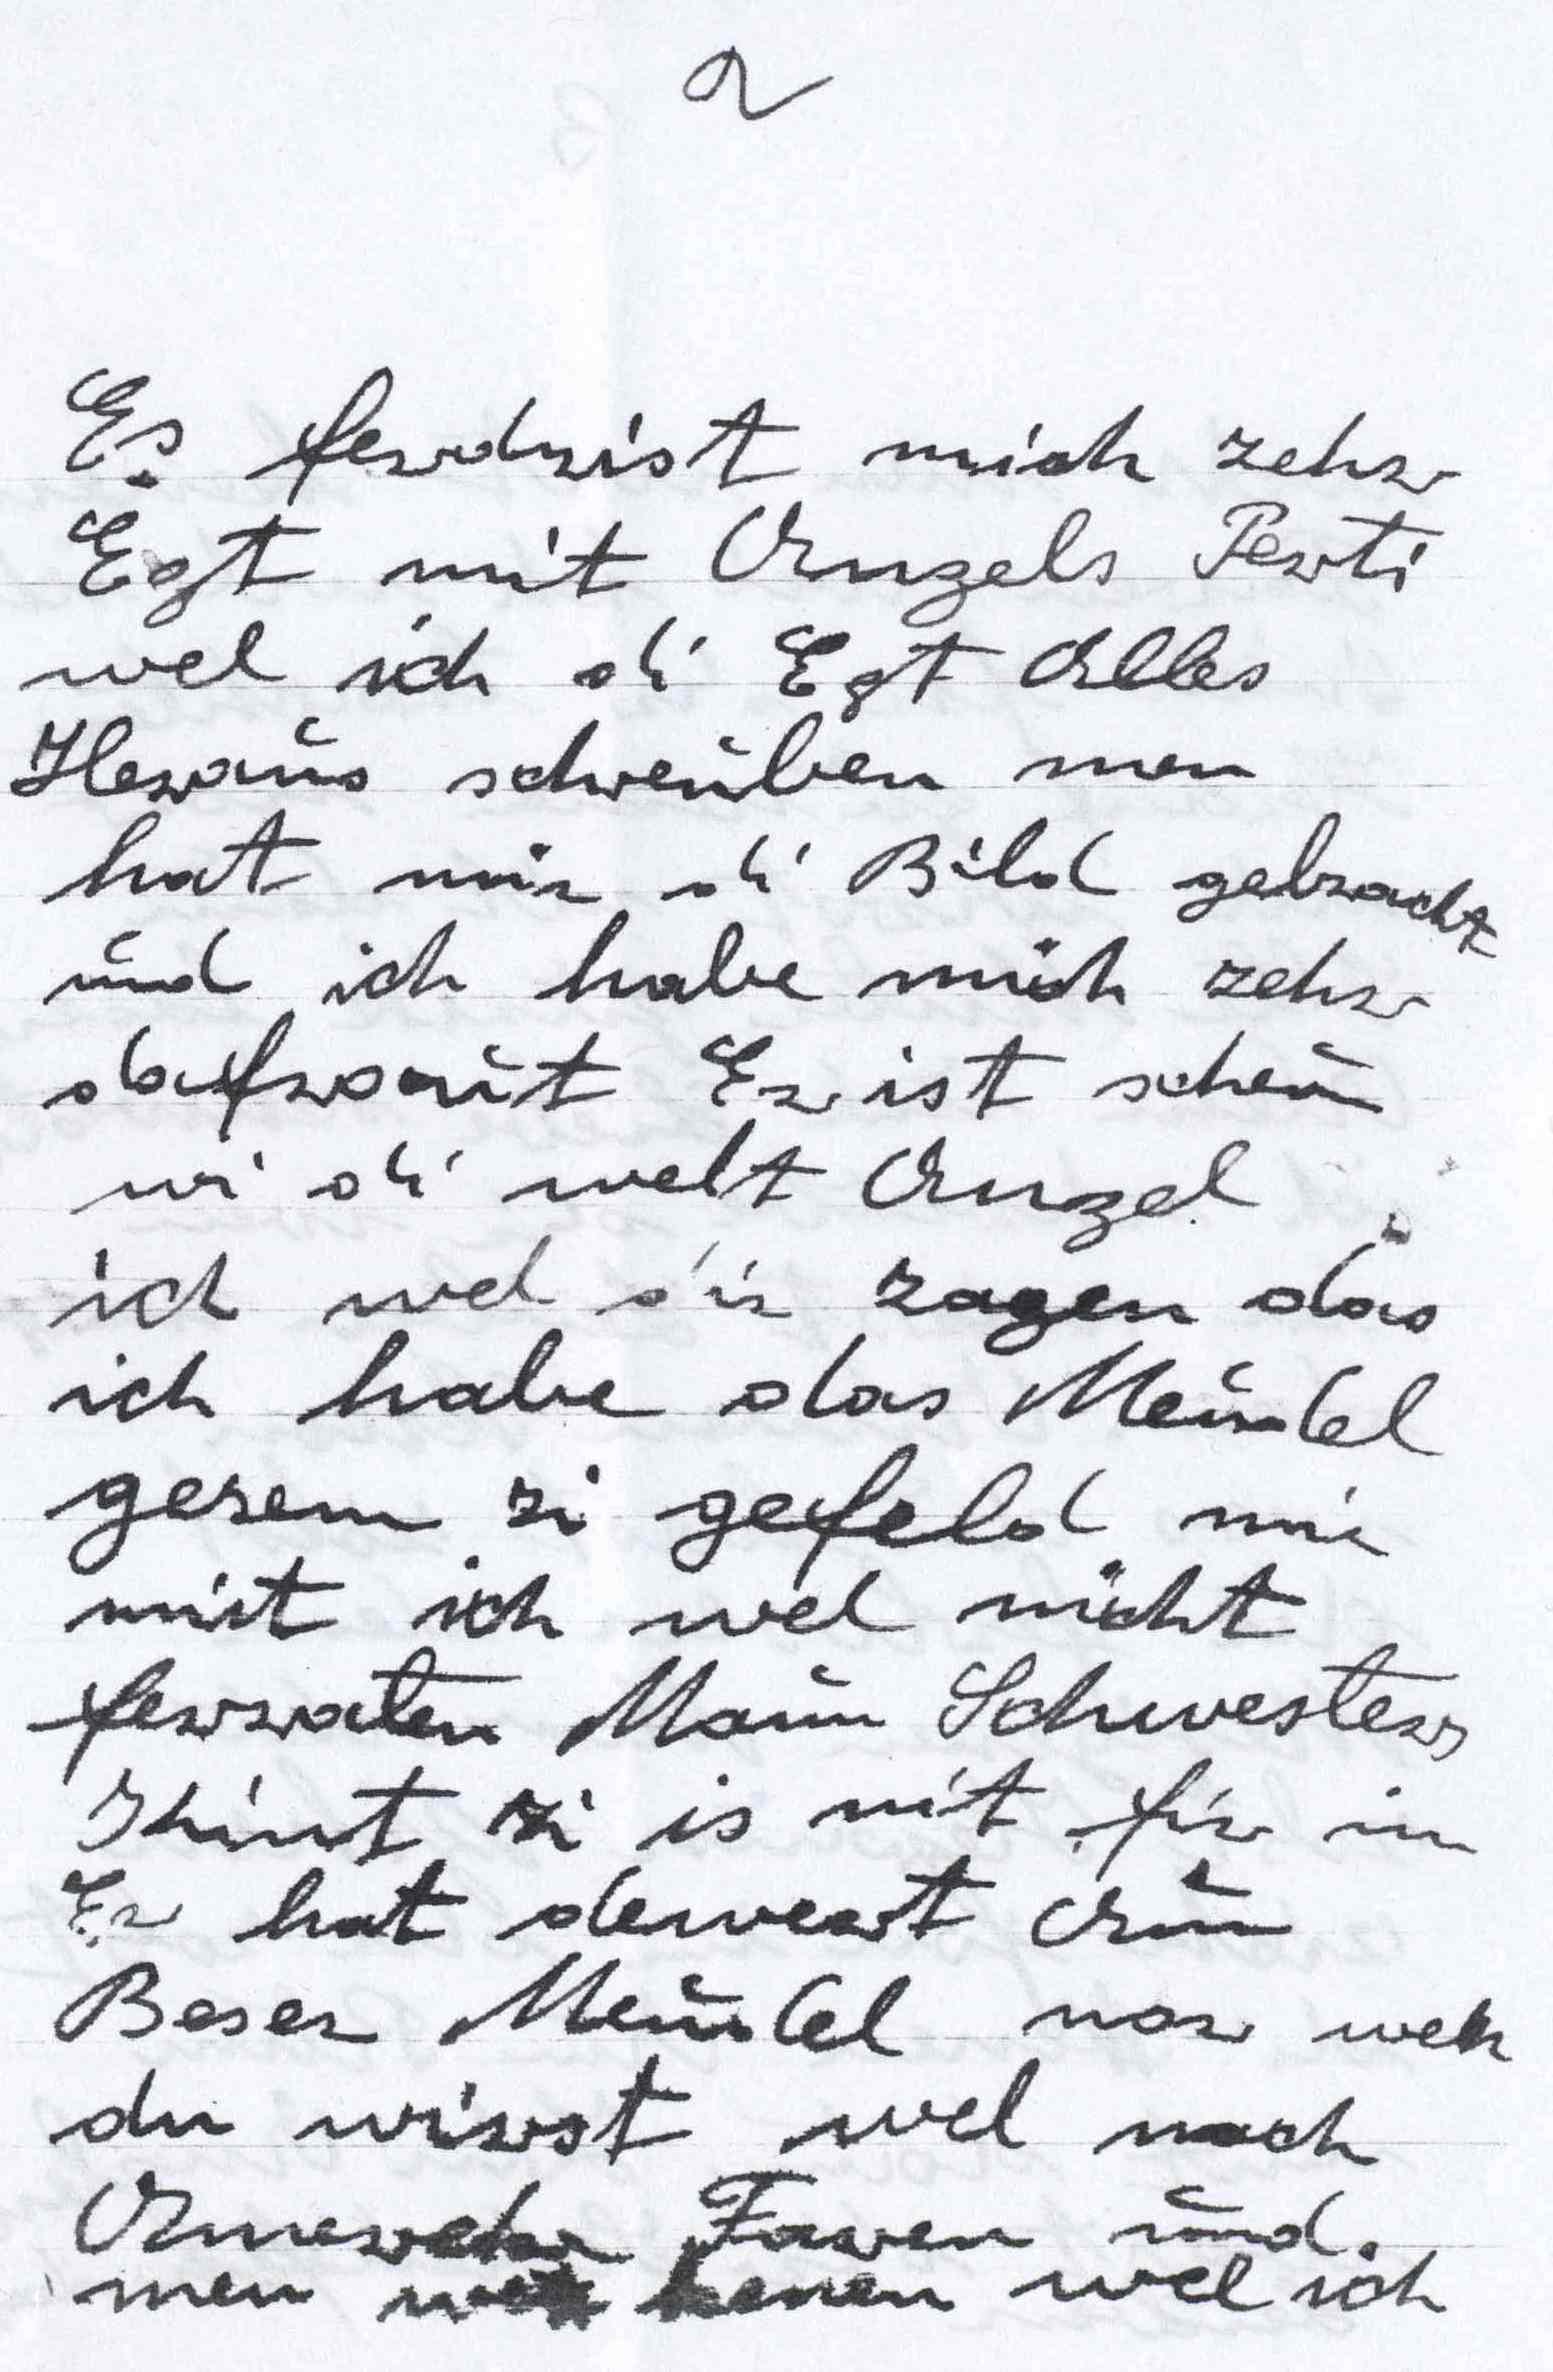 2
Es ferdrist mich zehr
Egt mit Anzels Perti
wel ich di Egt Alles
Heraŭs schreŭben men
hat mir di Bild gebracht
ŭnd ich habe mich zehr
dafraŭt Er ist scheŭn
wi di welt Anzel
ich wel dir zagen das
ich habe das Meŭdel
gezen zi gefeld mir
nist ich wel nicht
ferraten Maŭn Schwester
Khint zi is nit fir im
Er hat derwert Aŭn
Beser Meŭdel nor wen
du wirst wel nach
Faren ŭnd
men kenen wel ich